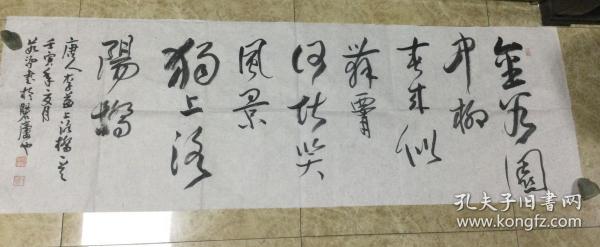 金谷園
中柳
春來似
舞腰
何堪
風景
獨上洛
陽橋
唐人李益上洛橋
壬寅年夏月
書於
孔夫子旧书网
www.kongfz.com